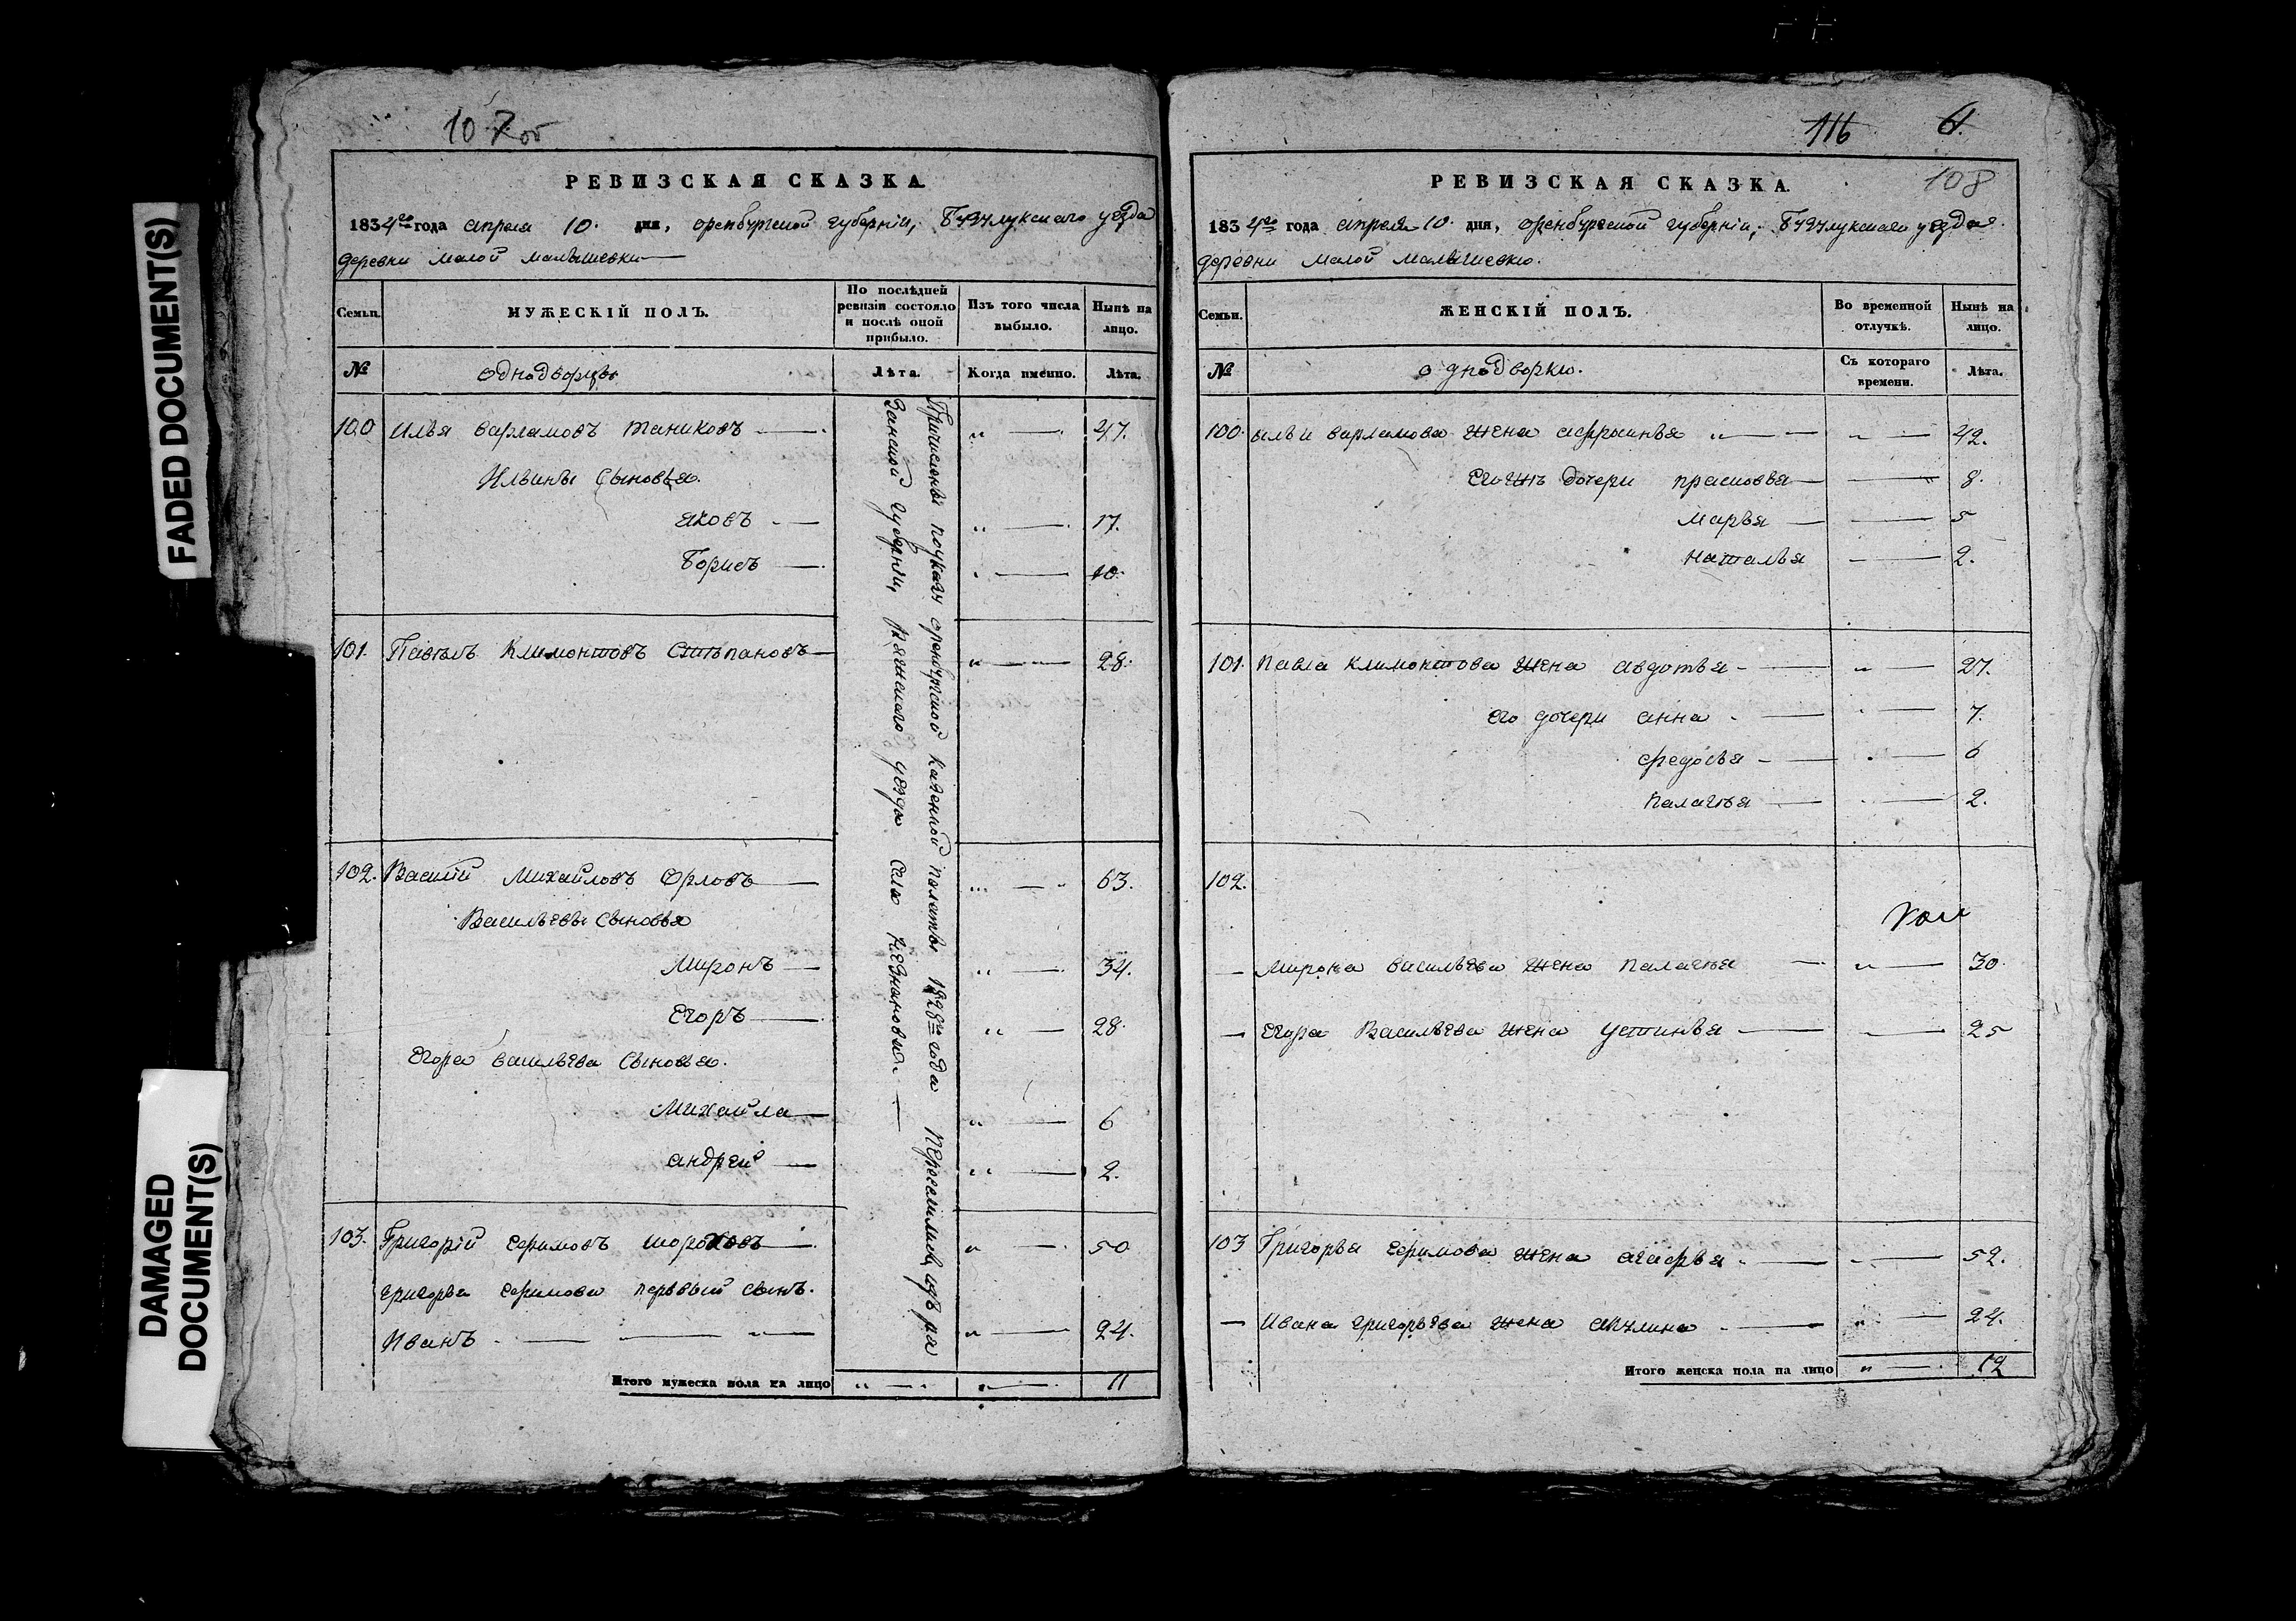 FADED DOCUMENT(S)
DAMAGED
DOCUMENT(S)
107об
РЕВИЗСКАЯ СКАЗКА.
1834го года апреля 10. дня, оренбургской губерніи, Бузулукскаго уезда
деревни малой малышевки
Семьи.
МУЖЕСКІЙ ПОЛЪ.
По послѣдней
ревизіи состояло
и послѣ оной
прибыло.
Изъ того числа
выбыло.
Нынѣ на
лицо.
№
однодворцы
Лѣта.
Когда именно.
Лѣта.
Причислены поуказу оренбургской казенной палаты 1828го года переселились изъ ря
занской губерніи, ряжскаго уезда села незнановы.
100 илья варламовъ таниковъ „ 47.
Ильины сыновья.
яковъ „ 17.
Борисъ „ 10.
101. Павелъ климонтовъ степановъ „ 28.
102. Василій Михайловъ Орловъ „ 63.
Васильевы сыновья
Миронъ „ 34.
Егоръ „ 28.
Егора васильева сыновья.
Михайла „ 6
андрей „ 2.
103. Григорій ефимовъ шороховъ „ 50
григорья ефимова первый сынъ.
Иванъ „ 24.
Итого мужеска пола на лицо „ „ 11
116 6.
108
РЕВИЗСКАЯ СКАЗКА.
1834го года апреля 10. дня, оренбургской губерніи, Бузулукскаго уезда
деревни малой малышевки.
Семьи.
ЖЕНСКІЙ ПОЛЪ.
Во временной
отлучкѣ.
Нынѣ на
лицо.
№
однодворки.
Съ котораго
времени.
Лѣта.
100. ильи варламова жена афросинья „ 42.
Егожъ дочери прасковья 8.
марья 5
наталья 2.
101. павла климонтова жена авдотья „ 27.
его дочери анна 7.
федосья 6
палагея 2.
102.
мирона васильева жена палагея „ 30.
Егора Васильева жена устинья 25
103 Григорья ефимова жена агафья „ 52.
Ивана григорьева жена акулина „ 24.
Итого женска пола на лицо „ 12